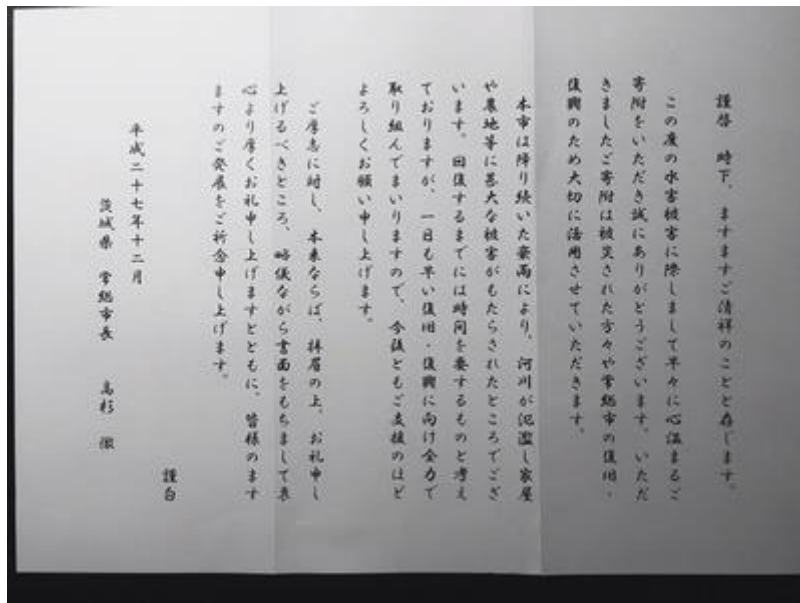 謹啓　時下、ますますご清祥のことと存じます。
この度の水害被害に際しまして早々に心温まるご
寄附をいただき誠にありがとうございます。いただ
きましたご寄附は被災された方々や常総市の復旧・
復興のため大切に活用させていただきます。
本市は降り続いた豪雨により、河川が氾濫し家屋
や農地等に甚大な被害がもたらされたところでござ
います。回復するまでには時間を要するものと考え
ておりますが、一日も早い復旧・復興に向け全力で
取り組んでまいりますので、今後ともご支援のほど
よろしくお願い申し上げます。
ご厚志に対し、本来ならば、拝眉の上、お礼申し
上げるべきところ、略儀ながら書面をもちまして衷
心より厚くお礼申し上げますとともに、皆様のます
ますのご発展をご祈念申し上げます。
謹白
平成二十七年十二月
茨城県　常総市長　高杉　徹